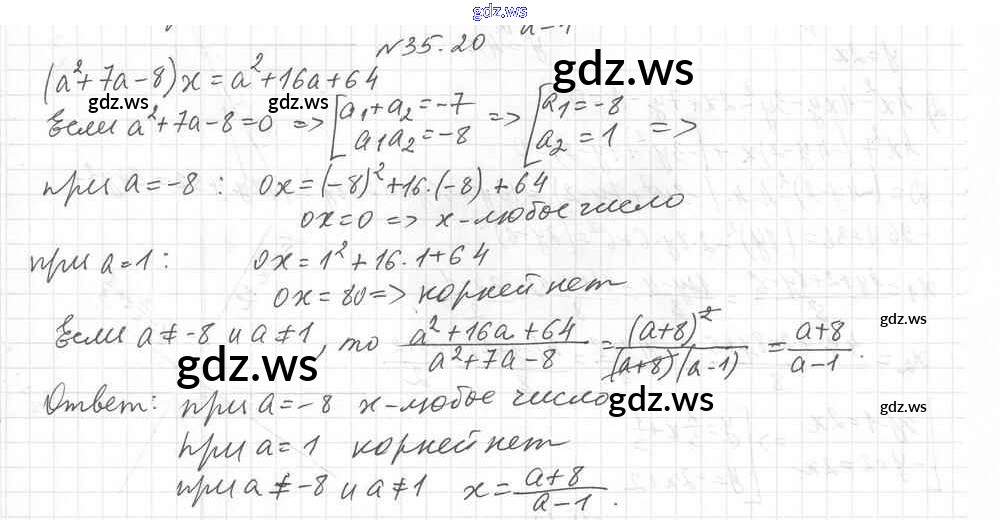 gdz.ws
a-1
N35.20
(a²+7a-8)x=a²+16a+64
gdz.ws gdz.ws gdz.ws
Если a²+7a-8=0 => [a₁+a₂=-7 a₁a₂=-8 => [a₁=-8 a₂=1 =>
при a=-8: 0x=(-8)²+16·(-8)+64
0x=0 => x-любое число
при a=1: 0x=1²+16·1+64
0x=80=> корней нет
Если a≠-8 и a≠1, то (a²+16a+64)/(a²+7a-8)=(a+8)²/((a+8)(a-1))=(a+8)/(a-1).
gdz.ws gdz.ws
Ответ: при a=-8 x-любое число
gdz.ws gdz.ws
при a=1 корней нет
при a≠-8 и a≠1 x=(a+8)/(a-1).